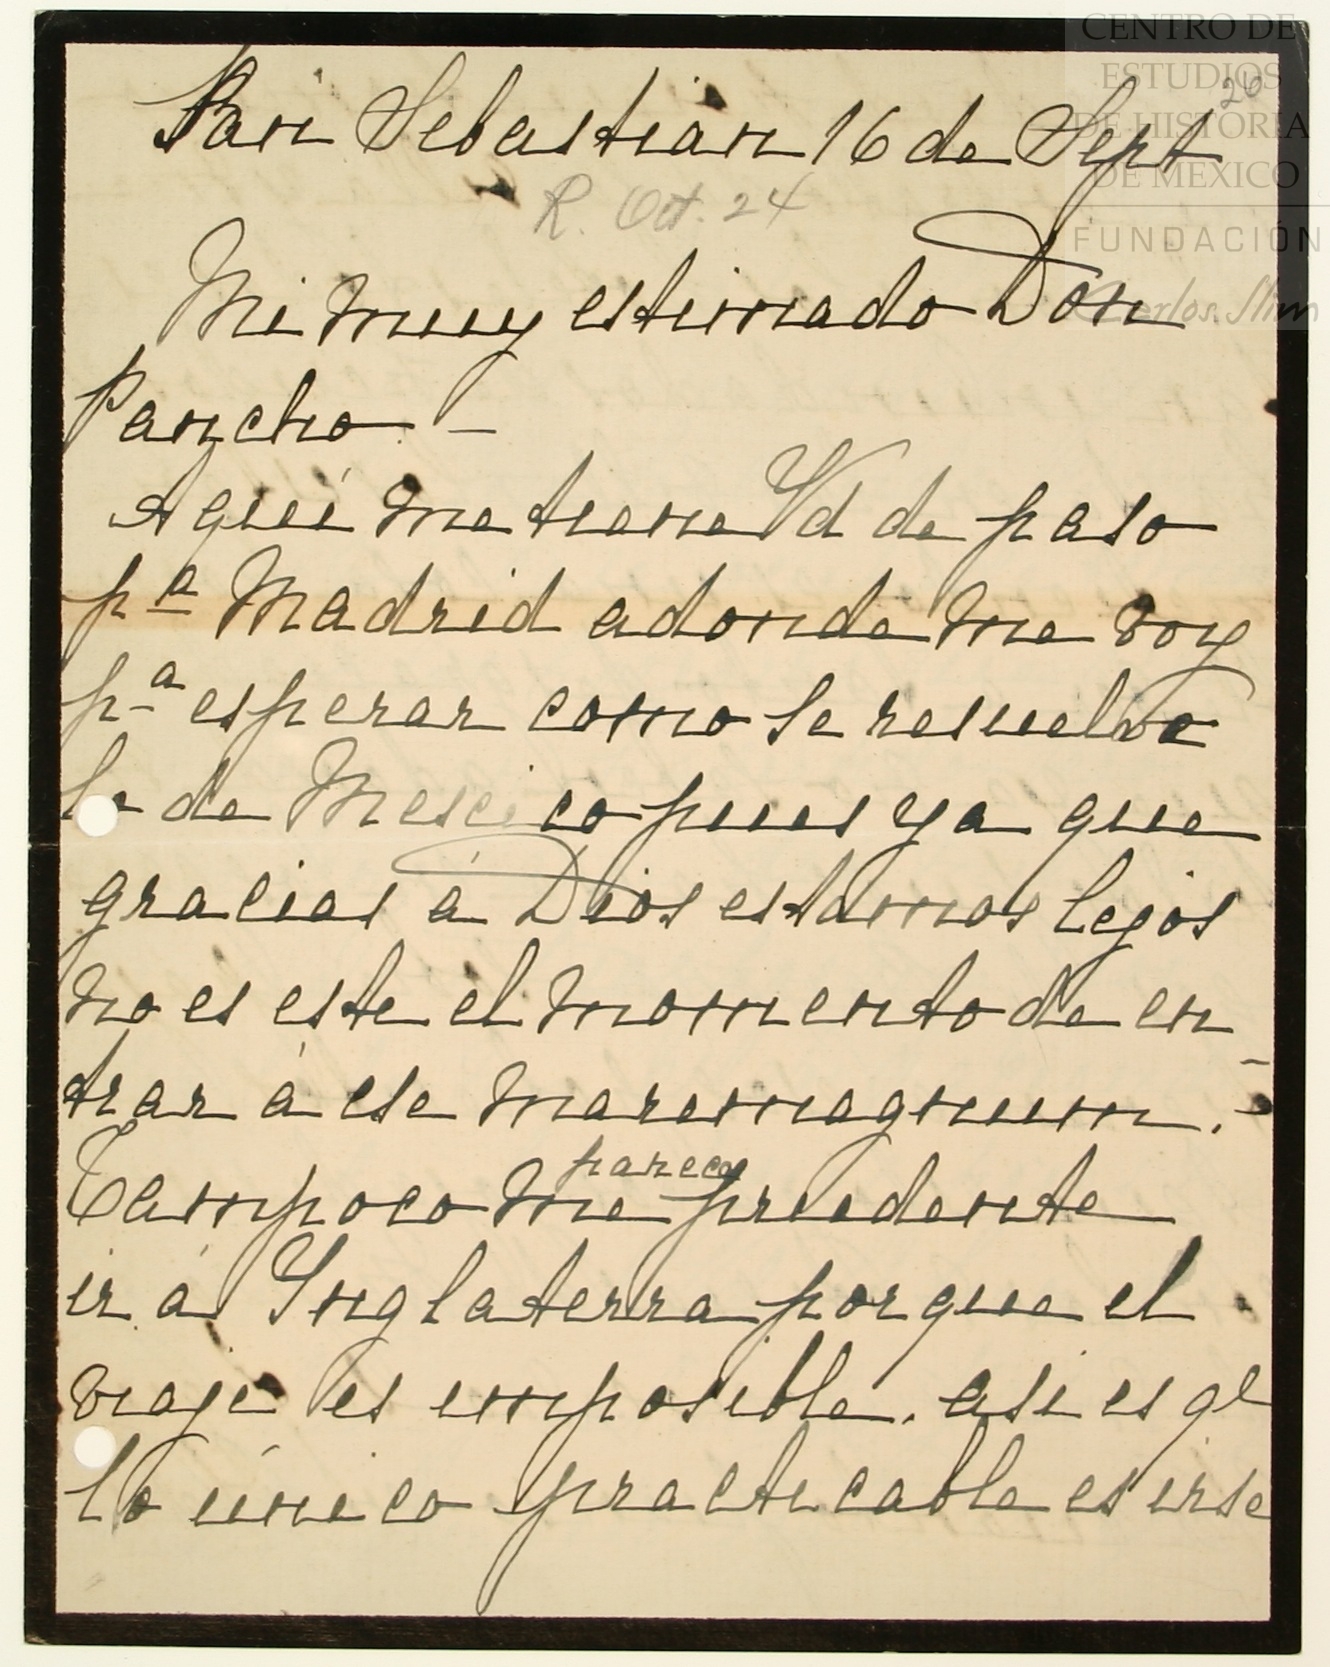 CENTRO DE
ESTUDIOS
DE HISTORIA
DE MEXICO
FUNDACIÓN
Carlos Slim
26
San Sebastian 16 de Sept
R. Oct. 24
Mi muy estimado Don
Pancho. —
Aquí me tiene Vd de paso
pª Madrid adonde me voy
pª esperar como se resuelve
lo de Mescico pues ya que
gracias á Dios estamos lejos
no es este el momento de en-
trar á ese maremagnum. -
Tampoco me parece prudente
ir á Inglaterra porque el
viaje es imposible. asi es qe
lo único practicable es irse